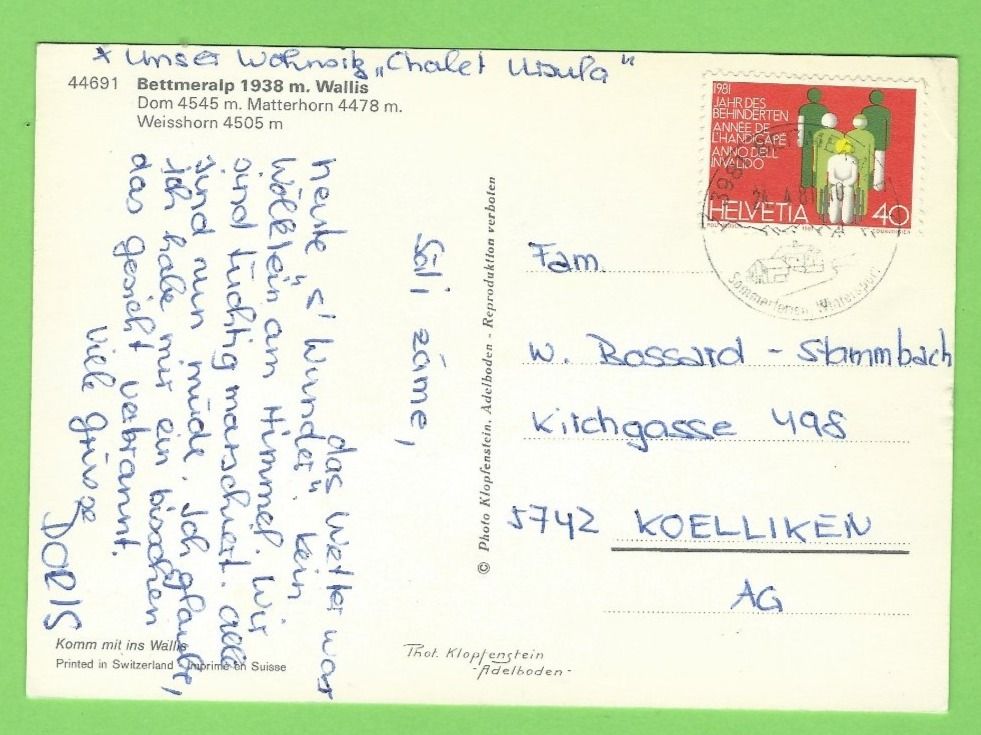 * Unser Wohnsitz „Chalet Ursula"
44691 Bettmeralp 1938 m. Wallis
Dom 4545 m. Matterhorn 4478 m.
Weisshorn 4505 m
Säli zäme,
das Wetter war
heute "s' Wunder". kein
Wölklein am Himmel. Wir
sind tüchtig marschiert. alle
sind nun müde. Ich glaube,
ich habe mir ein bisschen
das gesicht verbrannt.
Viele grüsse
DORIS
Komm mit ins Wallis
Printed in Switzerland - Imprimé en Suisse
© Photo Klopfenstein, Adelboden - Reproduktion verboten
Phot. Klopfenstein
-Adelboden-
1981
JAHR DES
BEHINDERTEN
ANNÉE DE
L'HANDICAPÉ
ANNO DELL'
INVALIDO
HELVETIA 40
COURVOISIER
24.4.81
Sommerferien, Wintersport
Fam.
W. Bossard - Stammbach
Kirchgasse 498
5742 KOELLIKEN
AG